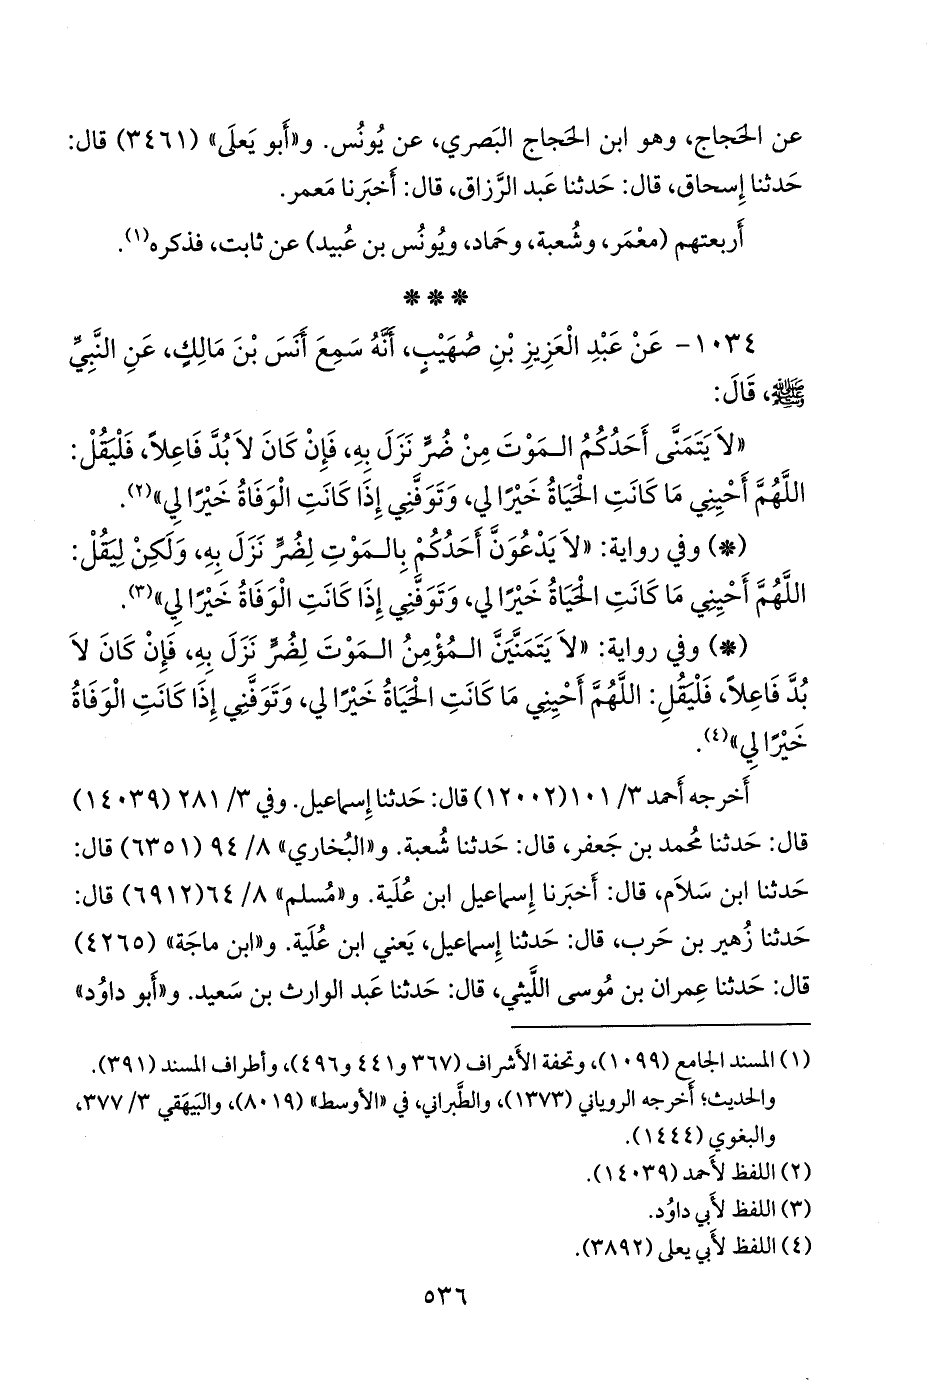 عن الحَجاج، وهو ابن الحَجاج البَصري، عن يُونُس. و«أَبو يَعلَى» (٣٤٦١) قال:
حَدثنا إِسحاق، قال: حَدثنا عَبد الرَّزاق، قال: أَخبَرنا مَعمر.
أَربعتهم (معْمَر، وشُعبة، وحَماد، ويُونُس بن عُبيد) عن ثابت، فذكره(١).
* * *
١٠٣٤- عَنْ عَبْدِ الْعَزِيزِ بْنِ صُهَيْبٍ، أَنَّهُ سَمِعَ أَنَسَ بْنَ مَالِكٍ، عَنِ النَّبِيِّ
ﷺ، قَالَ:
«لاَ يَتَمَنَّى أَحَدُكُمُ الـمَوْتَ مِنْ ضُرٍّ نَزَلَ بِهِ، فَإِنْ كَانَ لاَ بُدَّ فَاعِلاً، فَلْيَقُلْ:
اللَّهُمَّ أَحْيِنِي مَا كَانَتِ الْحَيَاةُ خَيْرًا لِي، وَتَوَفَّنِي إِذَا كَانَتِ الْوَفَاةُ خَيْرًا لِي»(٢).
(*) وفي رواية: «لاَ يَدْعُوَنَّ أَحَدُكُمْ بِالـمَوْتِ لِضُرٍّ نَزَلَ بِهِ، وَلَكِنْ لِيَقُلْ:
اللَّهُمَّ أَحْيِنِي مَا كَانَتِ الْحَيَاةُ خَيْرًا لِي، وَتَوَفَّنِي إِذَا كَانَتِ الْوَفَاةُ خَيْرًا لِي»(٣).
(*) وفي رواية: «لاَ يَتَمَنَّيَنَّ الـمُؤْمِنُ الـمَوْتَ لِضُرٍّ نَزَلَ بِهِ، فَإِنْ كَانَ لاَ
بُدَّ فَاعِلاً، فَلْيَقُلِ: اللَّهُمَّ أَحْيِنِي مَا كَانَتِ الْحَيَاةُ خَيْرًا لِي، وَتَوَفَّنِي إِذَا كَانَتِ الْوَفَاةُ
خَيْرًا لِي»(٤).
أَخرجه أَحمد ٣/ ١٠١ (١٢٠٠٢) قال: حَدثنا إِسماعيل. وفي ٣/ ٢٨١ (١٤٠٣٩)
قال: حَدثنا مُحمد بن جَعفر، قال: حَدثنا شُعبة. و«البُخاري» ٨/ ٩٤ (٦٣٥١) قال:
حَدثنا ابن سَلاَم، قال: أَخبَرنا إِسماعيل ابن عُلَية. و«مُسلم» ٨/ ٦٤ (٦٩١٢) قال:
حَدثنا زُهير بن حَرب، قال: حَدثنا إِسماعيل، يَعني ابن عُلَية. و«ابن ماجَة» (٤٢٦٥)
قال: حَدثنا عِمران بن مُوسى اللَّيثي، قال: حَدثنا عَبد الوارث بن سَعيد. و«أَبو داوُد»
(١) المسند الجامع (١٠٩٩)، وتحفة الأَشراف (٣٦٧ و٤٤١ و٤٩٦)، وأَطراف المسند (٣٩١).
والحديث؛ أَخرجه الروياني (١٣٧٣)، والطَّبراني، في «الأَوسط» (٨٠١٩)، والبَيهَقي ٣/ ٣٧٧،
والبغوي (١٤٤٤).
(٢) اللفظ لأَحمد (١٤٠٣٩).
(٣) اللفظ لأَبي داوُد.
(٤) اللفظ لأَبي يعلى (٣٨٩٢).
٥٣٦